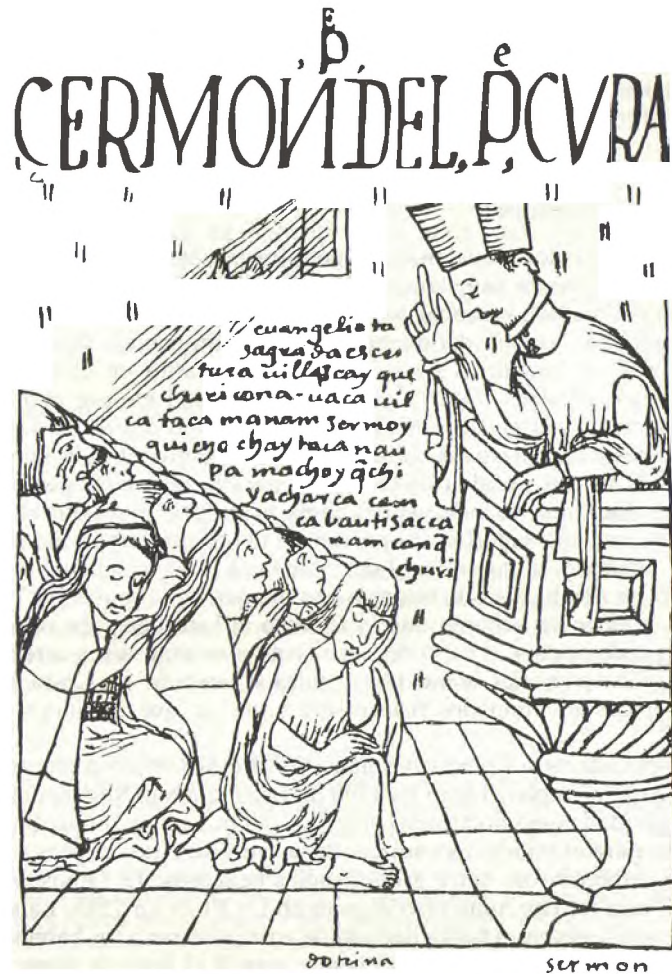 Pᴱ
ÇERMON,DEL,Pᵉ,CVRA
euangelio ta
sagrada escri
tura uillascay que
churicona-uaca uil
cataca manam sermoy
quicho chaytaca nau
pa machoyq̃chi
yacharca cam
ca bautisacca
mam canq̃
churi
dotrina
sermon